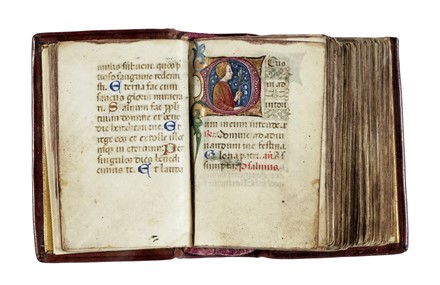 subueni. quos p
tioso sanguine redemi
sti. Eterna fac cum
sanctis gloria munera
ri. Saluum fac pplm
tuum domine et bene
dic hereditati tue. Et
rege eos et extolle illos
usqȝ in eternum. Per
singulos dies benedi
cimus te. Et lauda
Deus
in ad
iutori
um meum intende.
Domine ad adiu
uandum me festina.
Gloria patri. añ. As
sumpta. Psalmus.